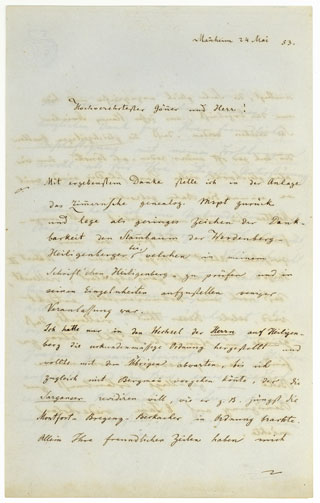 24 Mai 53.
Hochverehrtester Gönner und Herr!
Mit ergebenstem Danke stelle ich in der Anlage
das zimmernsche genealog. Mspt zurück
und lege als geringes Zeichen der Dank-
barkeit den Stambaum der Werdenberg-
Heiligenberger bei, welchen in meinem
Schriftchen Heiligenberg zu prüfen und in
seinen Einzelnheiten aufzustellen weniger
Veranlassung war.
Ich hatte nur in den Wechsel der Herrn auf Heiligen-
berg die urkundenmäßige Ordnung hergestellt und
wollte mit den Übrigen abwarten, bis ich
zugleich mit Bergman vorgehen könte, der die
Sarganser revidiren will, wie er z.B. jüngst die
Montfort-Bregenz-Beckacher in Ordnung brachte.
Allein Ihre freundlichen Zeilen haben mich